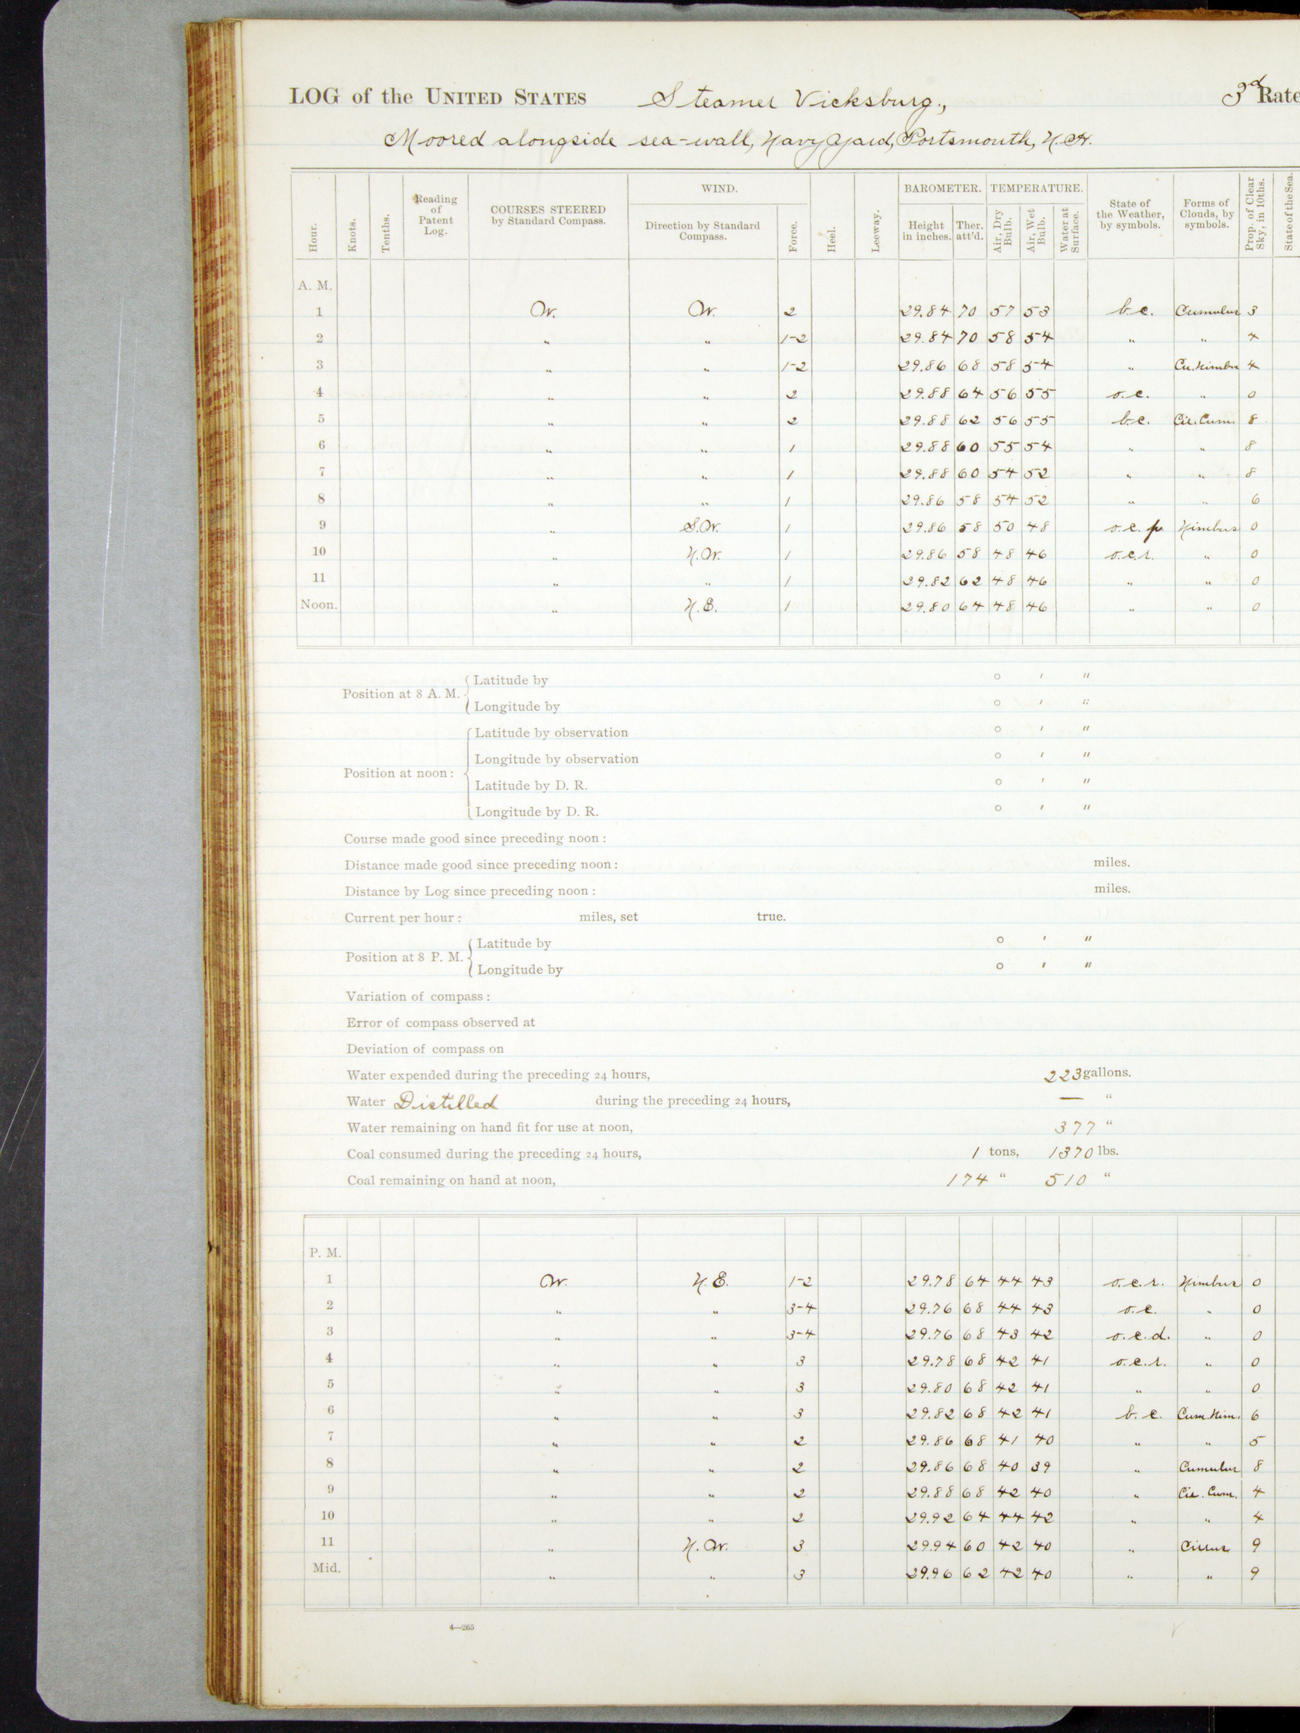 LOG of the UNITED STATES Steamer Vicksburg., 3d Rate
Moored alongside sea-wall, Navy Yard, Portsmouth, N.H.
Hour. Knots. Tenths. Reading of Patent Log. COURSES STEERED by Standard Compass. WIND. Direction by Standard Compass. Force. Heel. Leeway. BAROMETER. Height in inches. Ther. att'd. TEMPERATURE. Air, Dry Bulb. Air, Wet Bulb. Water at Surface. State of the Weather, by symbols. Forms of Clouds, by symbols. Prop. of Clear Sky, in 10ths. State of the Sea.
A. M.
1 W. W. 2 29.84 70 57 53 b.c. Cumulus 3
2 " " 1-2 29.84 70 58 54 " " 4
3 " " 1-2 29.86 68 58 54 " Cu. Nimbu 4
4 " " 2 29.88 64 56 55 o.c. " 0
5 " " 2 29.88 62 56 55 b.c. Cir. Cum. 8
6 " " 1 29.88 60 55 54 " " 8
7 " " 1 29.88 60 54 52 " " 8
8 " " 1 29.86 58 54 52 " " 6
9 " S.W. 1 29.86 58 50 48 o.c.p Nimbus 0
10 " N.W. 1 29.86 58 48 46 o.c.r. " 0
11 " " 1 29.82 62 48 46 " " 0
Noon. " N.E. 1 29.80 64 48 46 " " 0
Position at 8 A. M. Latitude by ° ' "
Longitude by ° ' "
Position at noon: Latitude by observation ° ' "
Longitude by observation ° ' "
Latitude by D. R. ° ' "
Longitude by D. R. ° ' "
Course made good since preceding noon:
Distance made good since preceding noon: miles.
Distance by Log since preceding noon: miles.
Current per hour: miles, set true.
Position at 8 P. M. Latitude by ° ' "
Longitude by ° ' "
Variation of compass:
Error of compass observed at
Deviation of compass on
Water expended during the preceding 24 hours, 223 gallons.
Water Distilled during the preceding 24 hours, — "
Water remaining on hand fit for use at noon, 377 "
Coal consumed during the preceding 24 hours, 1 tons, 1370 lbs.
Coal remaining on hand at noon, 174 " 510 "
P. M.
1 W. N.E. 1-2 29.78 64 44 43 o.c.r. Nimbus 0
2 " " 3-4 29.76 68 44 43 o.c. " 0
3 " " 3-4 29.76 68 43 42 o.c.d. " 0
4 " " 3 29.78 68 42 41 o.c.r. " 0
5 " " 3 29.80 68 42 41 " " 0
6 " " 3 29.82 68 42 41 b.c. Cum. Nim. 6
7 " " 2 29.86 68 41 40 " " 5
8 " " 2 29.86 68 40 39 " Cumulus 8
9 " " 2 29.88 68 42 40 " Cir. Cum. 4
10 " " 2 29.92 64 44 42 " " 4
11 " N.W. 3 29.94 60 42 40 " Cirrus 9
Mid. " " 3 29.96 62 42 40 " " 9
4—265